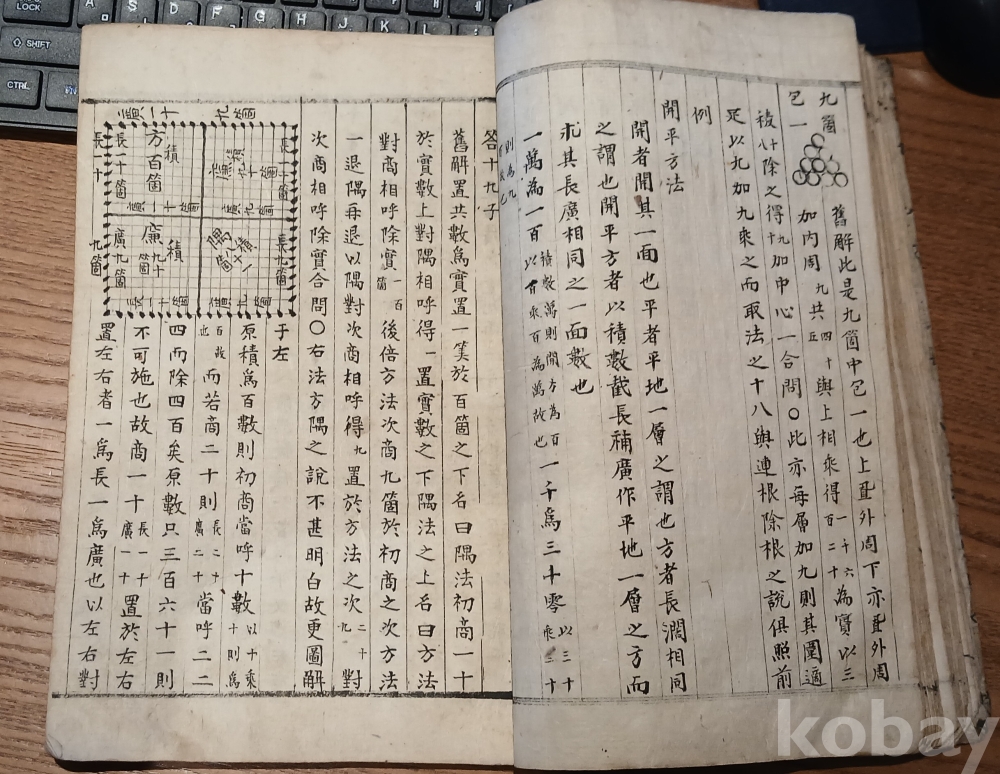 九箇
包一
舊解此是九箇中包一也上疊外周下亦疊外周
加內周九共四十五與上相乘得一百二十六為實以三
後八除之得十九加中心一合問〇此亦每層加九則其圍適
足以九加九乘之而取法之十八與連根除根之說俱照前
例
開平方法
開者開其一面也平者平地一層之謂也方者長濶相同
之謂也開平方者以積數截長補廣作平地一層之方而
求其長廣相同之一面數也
一萬為一百以百乘百為萬故也積數萬則開方為百一千爲三十零以三十乘三十
則為九
答十九子
舊解置共數爲實置一筭於百箇之下名曰隅法初商一十
於實數上對隅相呼得一置實數之下隅法之上名曰方法
對商相呼除實一百箇後倍方法次商九箇於初商之次方法
一退隅再退以隅對次商相呼得九置於方法之次二十九對
次商相呼除實合問〇右法方隅之說不甚明白故更圖解
于左
原積爲百數則初商當呼十數以十乘十則爲
百故也而若商二十則長二十廣二十當呼二二
四而除四百矣原數只三百六十一則
不可施也故商一十長一十廣一十置於左右
置左右者一爲長一爲廣也以左右對
長一十箇
方百箇
積
廉積九十箇
長一十箇
廣九箇
九箇
廣九箇
廉九十箇
積
隅積八十一箇
長九箇
SHIFT
CTRL
LOCK
kobay